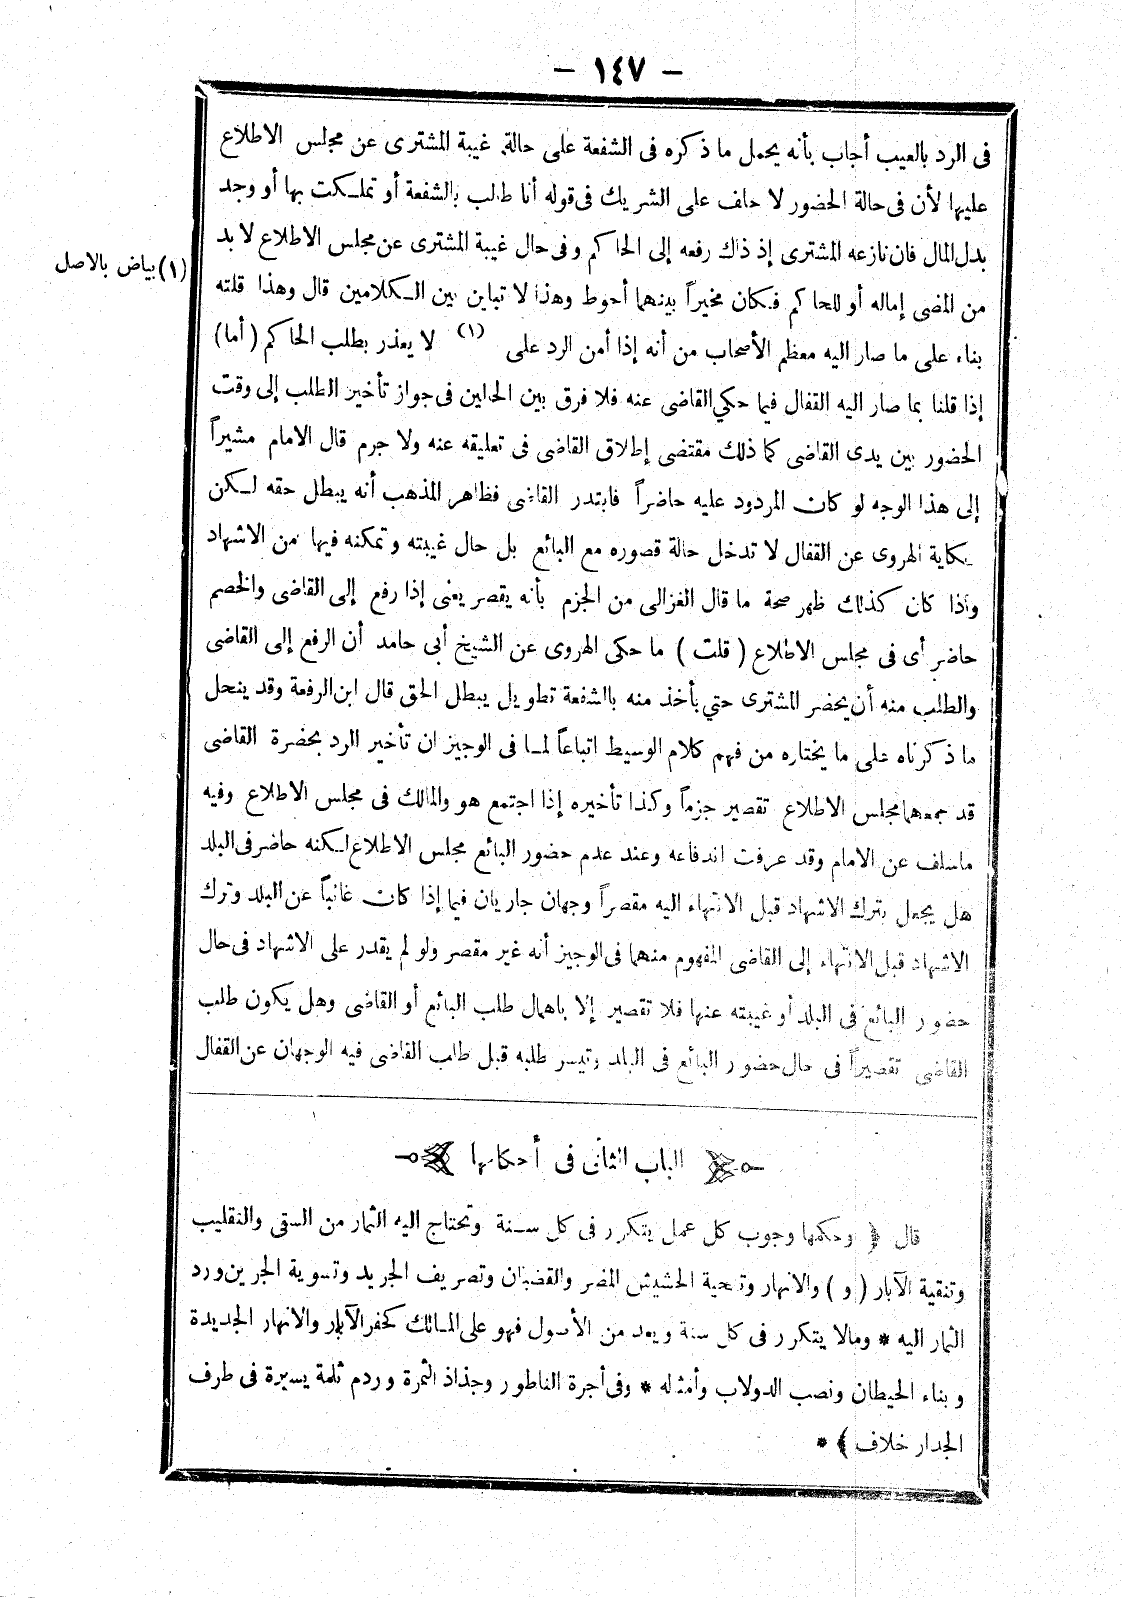 — ١٤٧ —
فى الرد بالعيب أجاب بأنه يحمل ما ذكره فى الشفعة على حالة غيبة المشترى عن مجلس الاطلاع
عليها لأن فى حالة الحضور لا حلف على الشريك فى قوله أنا طالب بالشفعة أو تملكت بها أو وجد
بدل المال فان نازعه المشترى إذ ذاك رفعه إلى الحاكم وفى حال غيبة المشترى عن مجلس الاطلاع لا بد
(١) بياض بالاصل
من المضى إماله أو للحاكم فكان مخيراً بينهما أحوط وهذا لا تباين بين الكلامين قال وهذا قلته
بناء على ما صار اليه معظم الأصحاب من أنه إذا أمن الرد على (١) لا يعذر بطلب الحاكم (أما)
إذا قلنا بما صار اليه القفال فيما حكي القاضى عنه فلا فرق بين الحالين فى جواز تأخير الطلب إلى وقت
الحضور بين يدى القاضى كما ذلك مقتضى إطلاق القاضى فى تعليقه عنه ولا جرم قال الامام مشيراً
إلى هذا الوجه لو كان المردود عليه حاضراً فابتدر القاضى فظاهر المذهب أنه يبطل حقه لكن
حكاية الهروى عن القفال لا تدخل حالة قصوره مع البائع بل حال غيبته وتمكنه فيها من الاشهاد
وإذا كان كذلك ظهر صحة ما قال الغزالى من الجزم بأنه يقصر يعنى إذا رفع إلى القاضى والخصم
حاضر أى فى مجلس الاطلاع (قلت) ما حكى الهروى عن الشيخ أبى حامد أن الرفع إلى القاضى
والطلب منه أن يحضر المشترى حتي يأخذ منه بالشفعة تطويل يبطل الحق قال ابن الرفعة وقد ينحل
ما ذكرناه على ما يختاره من فهم كلام الوسيط اتباعاً لما فى الوجيز ان تأخير الرد بحضرة القاضى
قد جمعهما مجلس الاطلاع تقصير جزماً وكذا تأخيره إذا اجتمع هو والمالك فى مجلس الاطلاع وفيه
ما سلف عن الامام وقد عرفت اندفاعه وعند عدم حضور البائع مجلس الاطلاع لكنه حاضر فى البلد
هل يجعل بترك الاشهاد قبل الانتهاء اليه مقصراً وجهان جاريان فيما إذا كان غائباً عن البلد وترك
الاشهاد قبل الانتهاء إلى القاضى المفهوم منهما فى الوجيز أنه غير مقصر ولو لم يقدر على الاشهاد فى حال
حضور البائع فى البلد أو غيبته عنها فلا تقصير إلا باهمال طلب البائع أو القاضى وهل يكون طلب
القاضى تقصيراً فى حال حضور البائع فى البلد وتيسر طلبه قبل طلب القاضى فيه الوجهان عن القفال
الباب الثانى فى أحكامها
قال ﴿ وحكمها وجوب كل عمل يتكرر فى كل سنة وتحتاج اليه الثمار من السقى والتقليب
وتنقية الآبار (و) والانهار وتنحية الحشيش المضر والقضبان وتصريف الجريد وتسوية الجرين ورد
الثمار اليه * ومالا يتكرر فى كل سنة ويعد من الأصول فهو على المالك كحفر الآبار والانهار الجديدة
وبناء الحيطان ونصب الدولاب وأمثاله * وفى أجرة الناطور وجذاذ الثمرة وردم ثلمة يسيرة فى طرف
الجدار خلاف ﴾ *